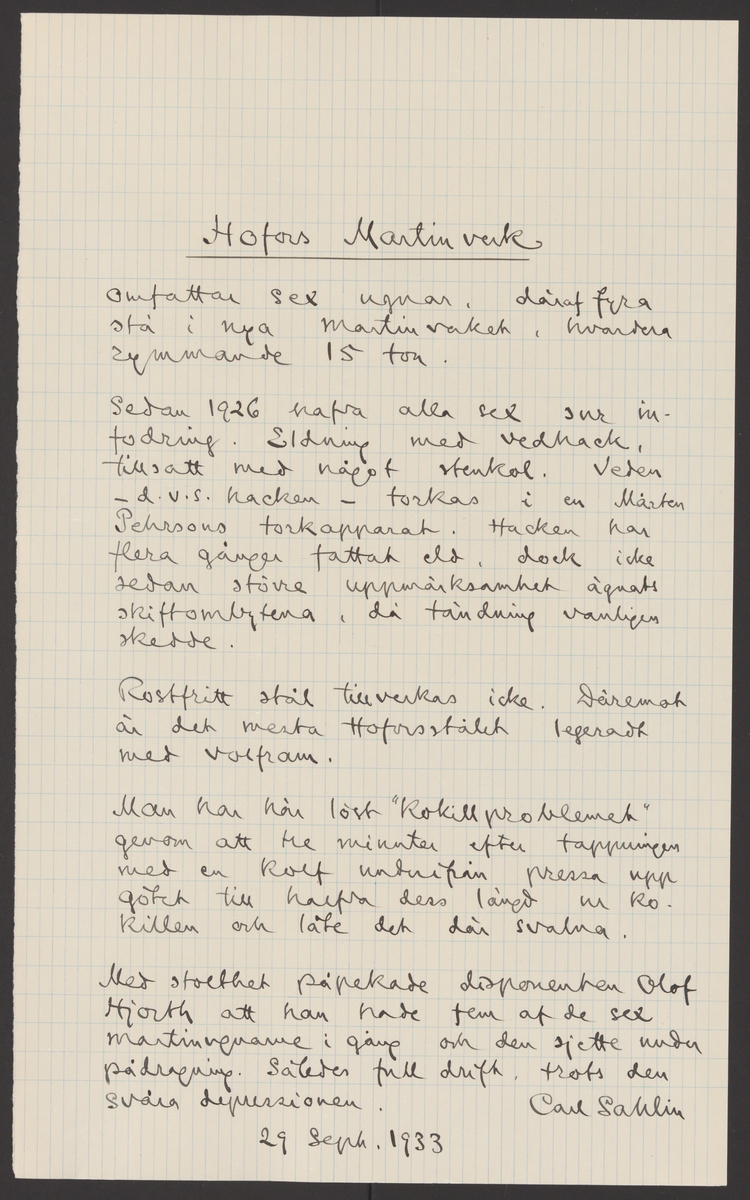 Hofors Martinverk
omfattar sex ugnar, däraf fyra
stå i nya martinverket, hvardera
rymmande 15 ton.
Sedan 1926 hafva alla sex sur in-
fodring. Eldning med vedhack,
tillsatt med något stenkol. Veden
– d.v.s. hacken – torkas i en Mårten
Pehrsons torkapparat. Hacken har
flera gånger fattat eld, dock icke
sedan större uppmärksamhet ägnats
skiftombytena, då tändning vanligen
skedde.
Rostfritt stål tillverkas icke. Däremot
är det mesta Hoforsstålet legeradt
med volfram.
Man har här löst "Kokillproblemet"
genom att tre minuter efter tappningen
med en kolf underifrån pressa upp
götet till halfva dess längd ur ko-
killen och låte det där svalna.
Med stolthet påpekade disponenten Olof
Hjorth att han hade fem af de sex
martinugnarne i gång och den sjette under
pådragning. Således full drift, trots den
svåra depressionen.
Carl Sahlin
29 Sept. 1933